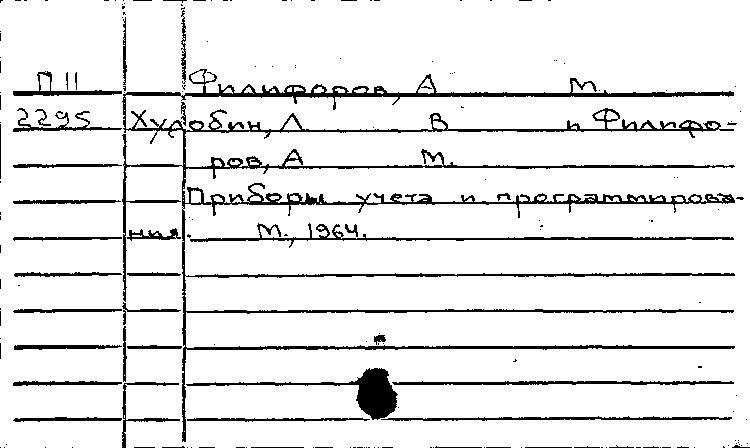 П II Филифоров, А М.
2295 Худобин, Л В и Филифо-
ров, А М.
Приборы учета и программирова-
ния. М., 1964.